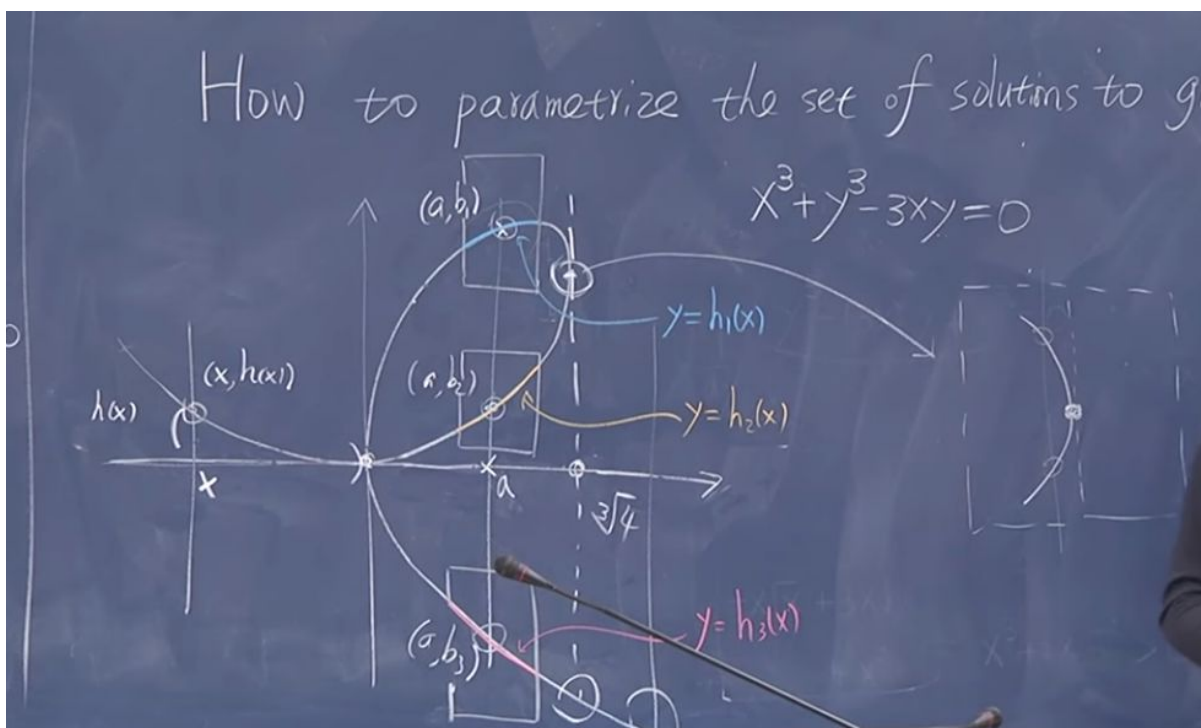 How to parametrize the set of solutions to g
x³+y³-3xy=0
(a,b₁)
y=h₁(x)
(x,h(x))
(a,b₂)
h(x)
y=h₂(x)
x
a
∛4
y=h₃(x)
(a,b₃)